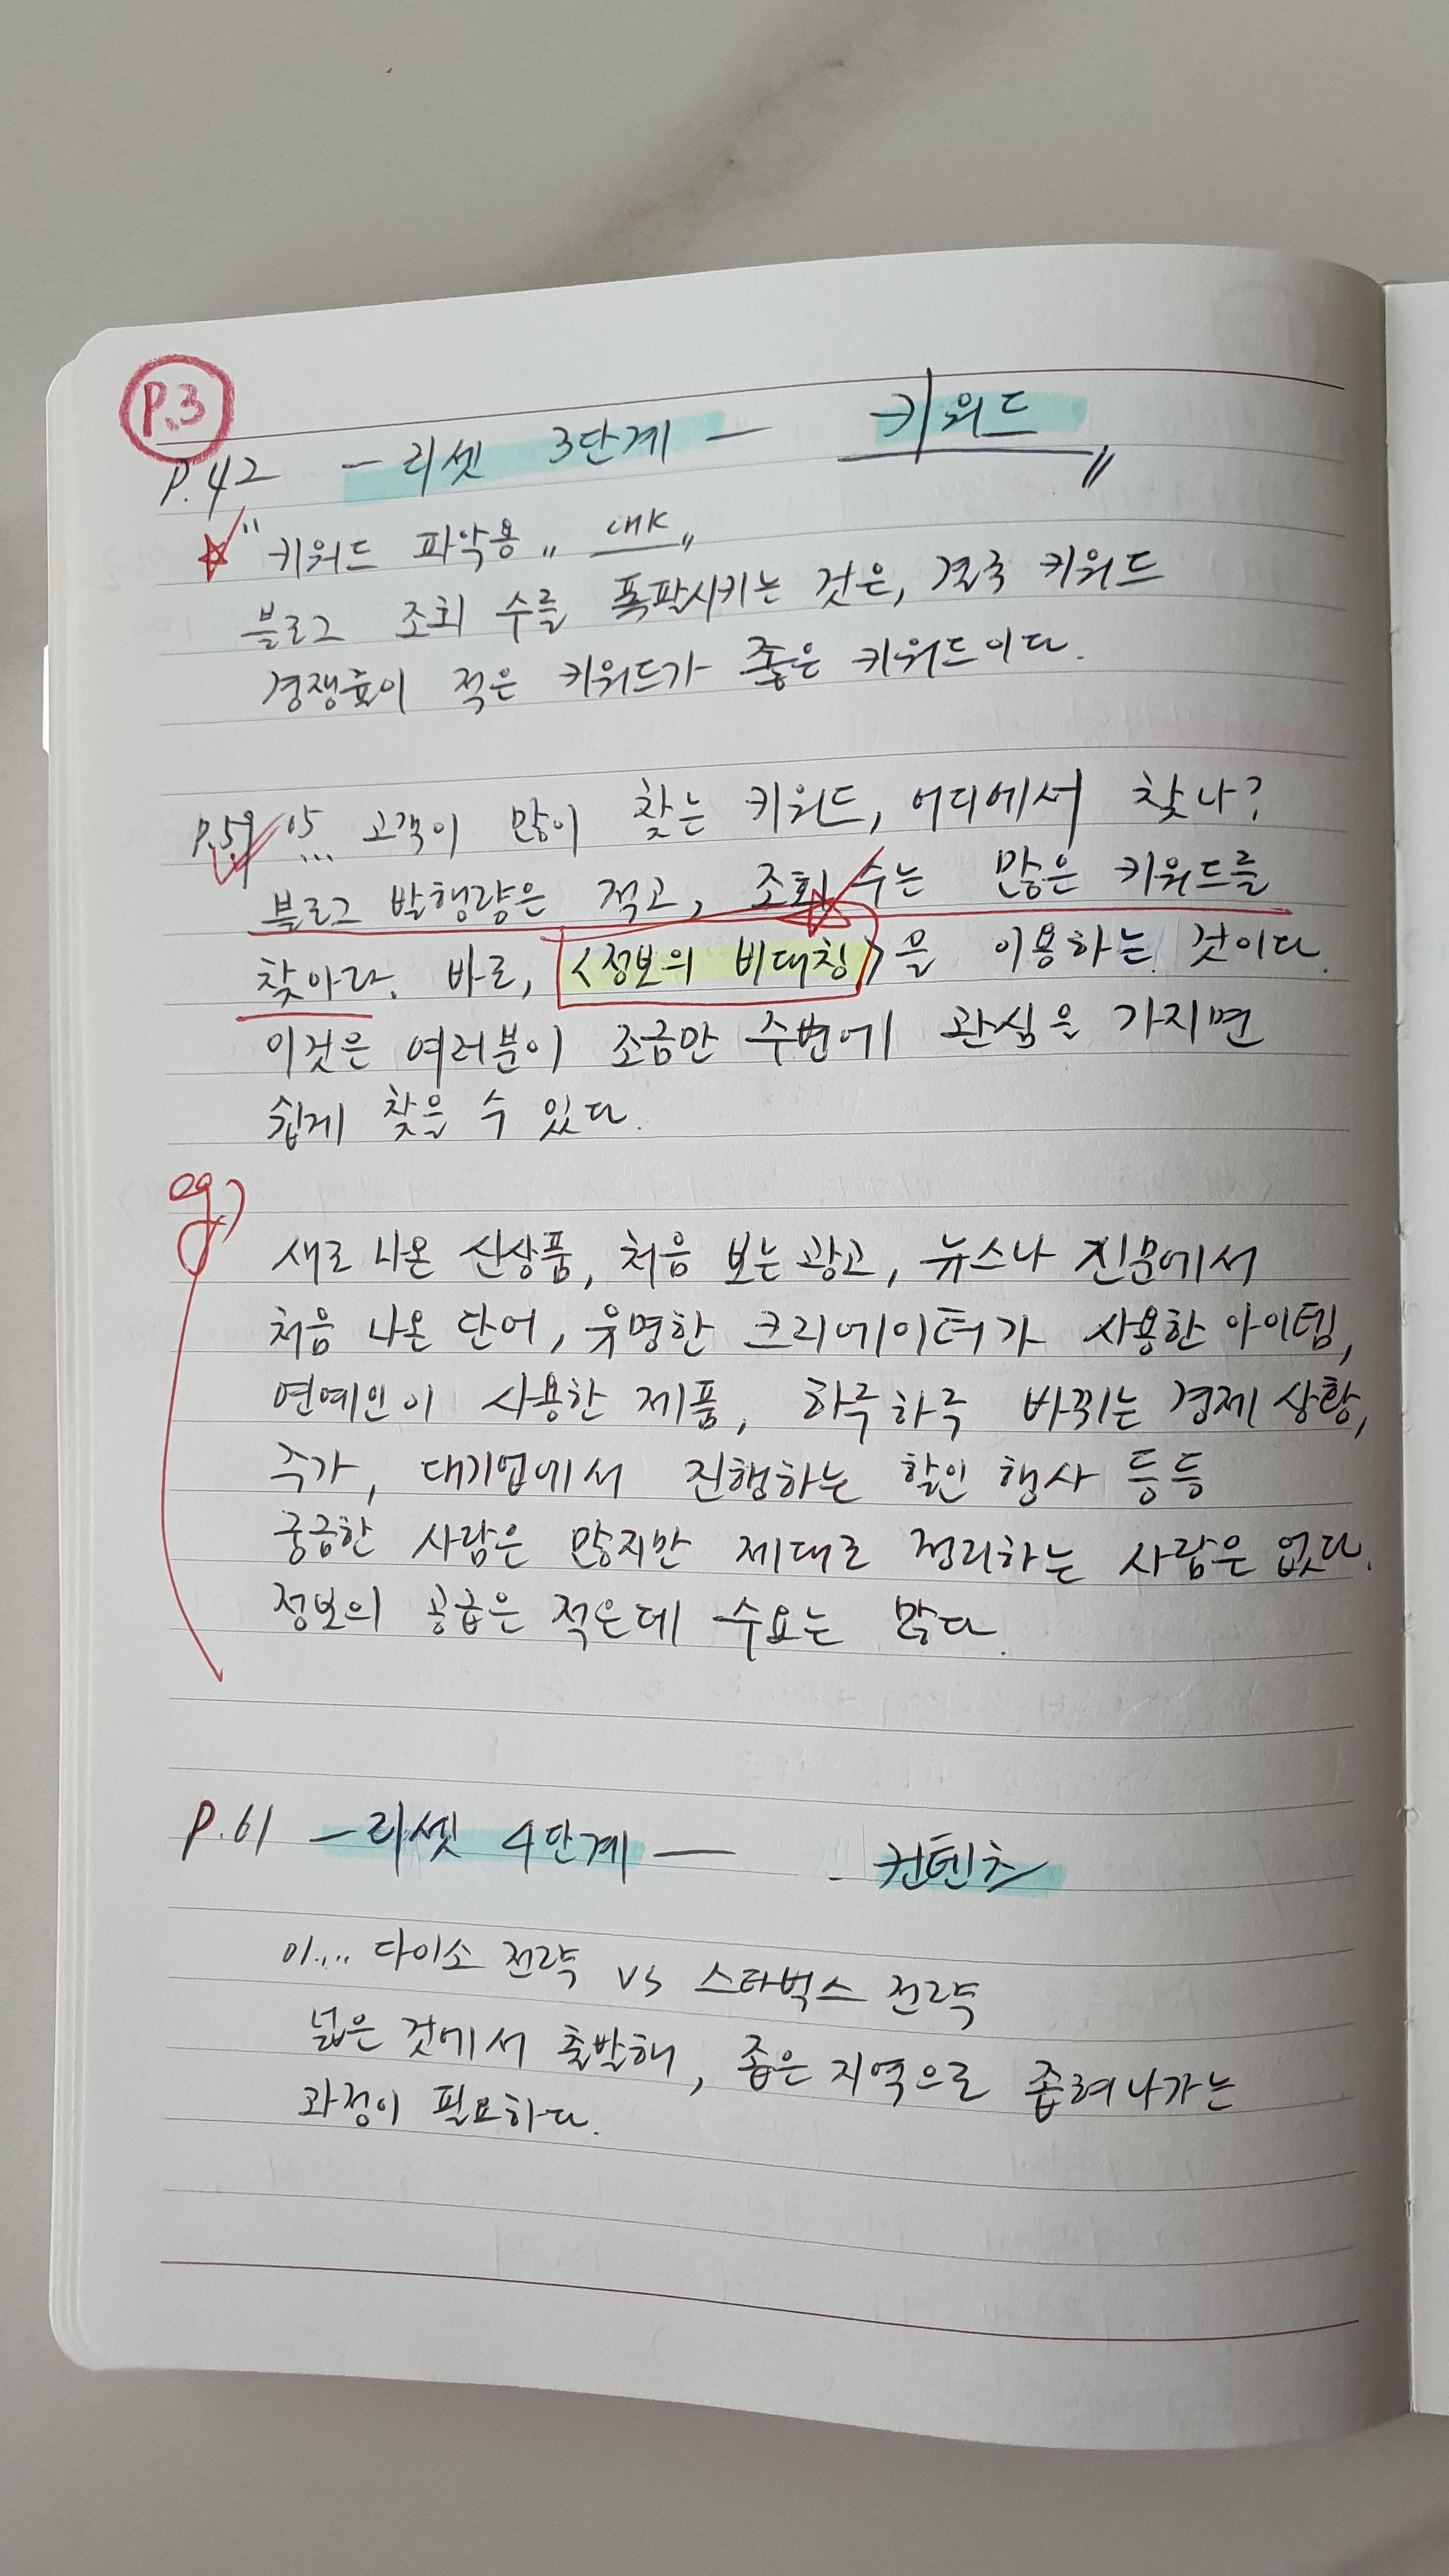 P.3
P.42 - 리셋 3단계 - 키워드 〃
☆ " 키워드 파악용 〃
블로그 조회 수를 폭팔시키는 것은, 결국 키워드
경쟁률이 적은 키워드가 좋은 키워드이다.
P.59 05... 고객이 많이 찾는 키워드, 어디에서 찾나?
블로그 발행량은 적고, 조회 수는 많은 키워드를
찾아라. 바로, <정보의 비대칭>을 이용하는 것이다.
이것은 여러분이 조금만 주변에 관심을 가지면
쉽게 찾을 수 있다.
eg)
새로 나온 신상품, 처음 보는 광고, 뉴스나 신문에서
처음 나온 단어, 유명한 크리에이터가 사용한 아이템,
연예인이 사용한 제품, 하루하루 바뀌는 경제 상황,
주가, 대기업에서 진행하는 할인 행사 등등
궁금한 사람은 많지만 제대로 정리하는 사람은 없다.
정보의 공급은 적은데 수요는 많다.
P.61 - 리셋 4단계 - 컨텐츠
01.... 다이소 전략 vs 스타벅스 전략
넓은 것에서 출발해, 좁은 지역으로 좁혀나가는
과정이 필요하다.